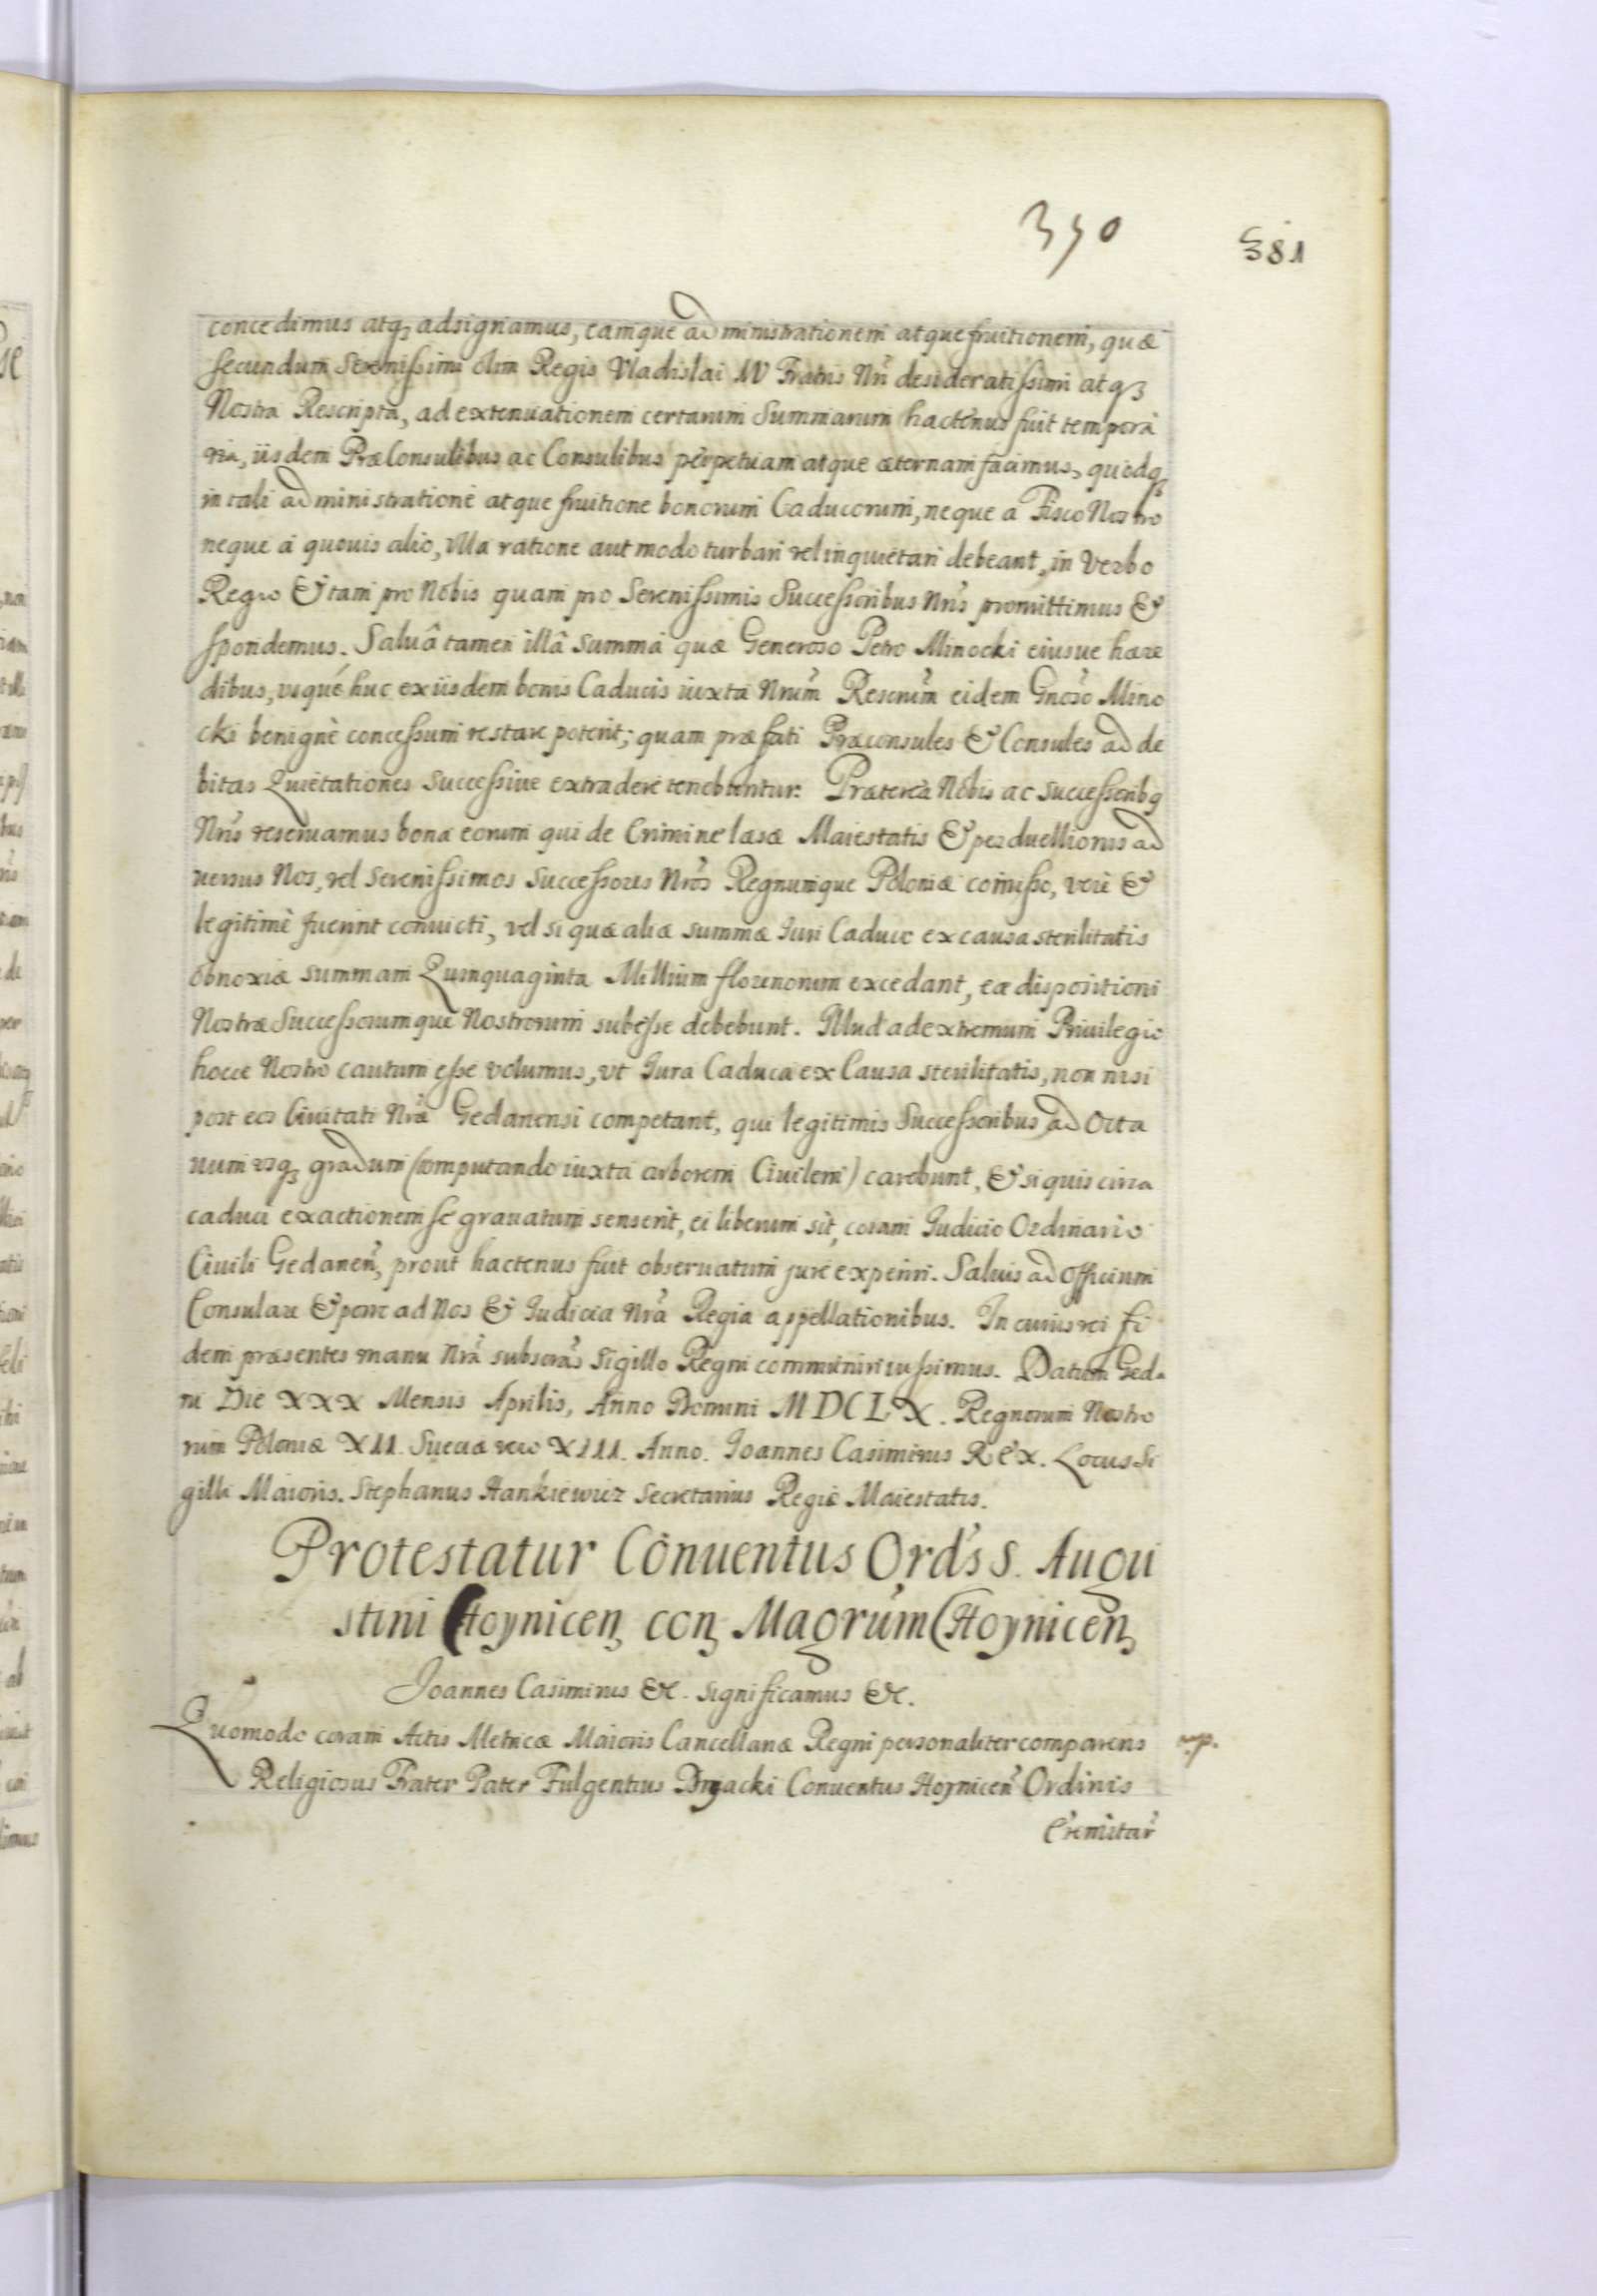 350
381
concedimus atq₃ adsignamus, eamque administrationem atque fruitionem, quæ
secundum Serenissimi olim Regis Vladislai IV Fratris Nri desideratissimi atq₃
Nostra Rescripta, ad extenuationem certarum Summarum hactenus fuit tempora
ria, iisdem PræConsulibus ac Consulibus perpetuam atque æternam facimus, quodq₃
in tali administratione atque fruitione bonorum Caducorum, neque a Fisco Nostro
neque a quouis alio, vlla ratione aut modo turbari vel inquietari debeant, in Verbo
Regio & tam pro Nobis quam pro Serenissimis Successoribus Nris promittimus &
spondemus. Saluâ tamen illâ summâ quæ Generoso Petro Minocki eiusue hære
dibus, vsqué huc ex iisdem bonis Caducis iuxta Nrum Rescrum eidem Gnoso Mino
cki benignè concessum restare poterit; quam præfati Præconsules & Consules ad de
bitas Quietationes successiue extradere tenebuntur. Præterea Nobis ac successoribq
Nris reseruamus bona eorum qui de Crimine læsæ Maiestatis & perduellionis ad
uersus Nos, vel Serenissimos Successores Nros Regnumque Poloniæ comisso, verè &
legitimè fuerint conuicti, vel si quæ aliæ summæ Iuri Caduco ex causa sterilitatis
obnoxiæ summam Quinquaginta Millium florenorum excedant, eæ dispositioni
Nostræ Successorumque Nostrorum subesse debebunt. Illud ad extremum Priuilegio
hocce Nostro cautum esse volumus, vt Iura Caduca ex Causa sterilitatis, non nisi
post eos Ciuitati Nræ Gedanensi competant, qui legitimis Successoribus ad Octa
uum vsq₃ gradum (computando iuxta arborem Ciuilem) carebunt, & si quis circa
caduci exactionem se grauatum senserit, ei liberum sit, coram Iudicio Ordinario
Ciuili Gedanen, prout hactenus fuit obseruatum jure experiri. Saluis ad Officium
Consulare & porro ad Nos & Iudicia Nra Regia appellationibus. In cuius rei fi
dem præsentes manu Nra subscras Sigillo Regni communiri iussimus. Datum Geda
ni Die XXX Mensis Aprilis, Anno Domini MDCLX. Regnorum Nostro
rum Poloniæ XII. Sueciæ vero XIII. Anno. Ioannes Casimirus REX. Locus Si
gilli Maioris. Stephanus Hankiewicz Secretarius Regiæ Maiestatis.
Protestatur Conuentus Ords S. Augu
stini Choynicen₃ con₃ Magrum Choynicen₃
Ioannes Casimirus &c. Significamus &c.
Quomodo coram Actis Metricæ Maioris Cancellariæ Regni personaliter comparens
Religiosus Frater Pater Fulgentius Dryacki Conuentus Hoynicen Ordinis
Eremitar